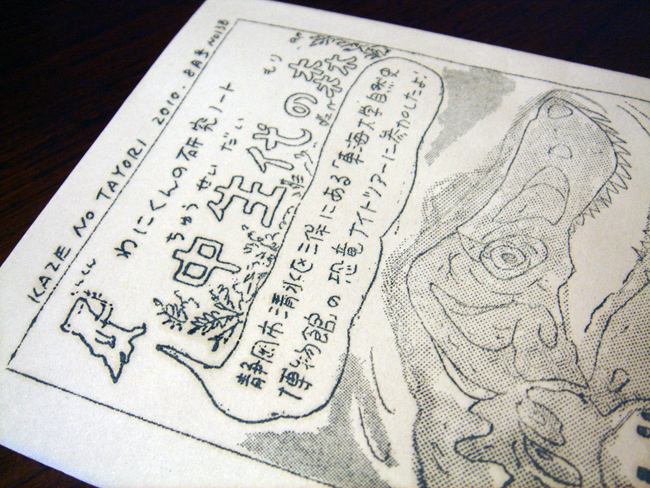 KAZE NO TAYORI 2010. 8月号 No138
わにくんの研究ノート
ちゅう せい だい もり
中生代の森
静岡市清水区三保にある「東海大学自然史
博物館」の恐竜ナイトツアーに参加したよ!